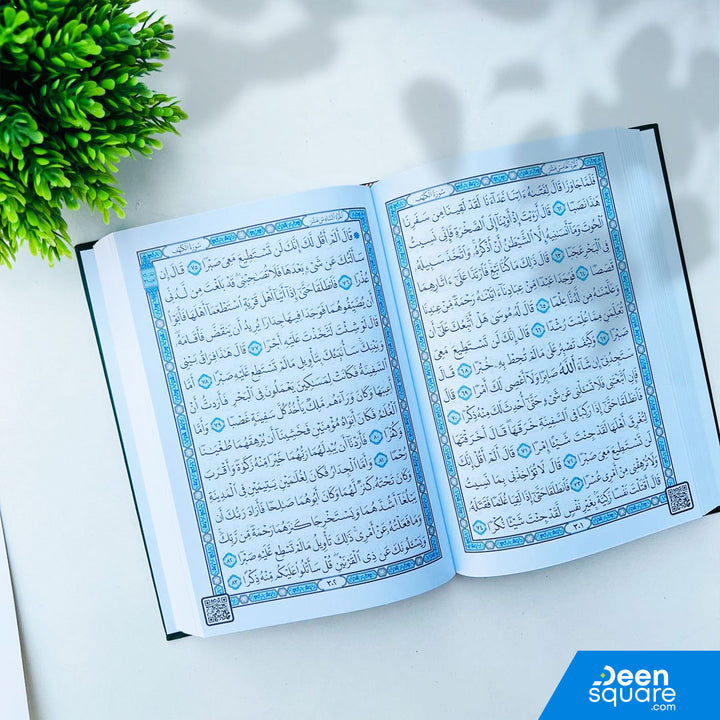 الجزء الخامس عشر
سورة الكهف
فَلَمَّا جَاوَزَا قَالَ لِفَتَىٰهُ ءَاتِنَا غَدَآءَنَا لَقَدْ لَقِينَا مِن سَفَرِنَا
هَٰذَا نَصَبًا ٦٢ قَالَ أَرَءَيْتَ إِذْ أَوَيْنَآ إِلَى ٱلصَّخْرَةِ فَإِنِّي نَسِيتُ
ٱلْحُوتَ وَمَآ أَنسَىٰنِيهُ إِلَّا ٱلشَّيْطَٰنُ أَنْ أَذْكُرَهُۥ وَٱتَّخَذَ سَبِيلَهُۥ
فِي ٱلْبَحْرِ عَجَبًا ٦٣ قَالَ ذَٰلِكَ مَا كُنَّا نَبْغِ فَٱرْتَدَّا عَلَىٰٓ ءَاثَارِهِمَا
قَصَصًا ٦٤ فَوَجَدَا عَبْدًا مِّنْ عِبَادِنَآ ءَاتَيْنَٰهُ رَحْمَةً مِّنْ عِندِنَا
وَعَلَّمْنَٰهُ مِن لَّدُنَّا عِلْمًا ٦٥ قَالَ لَهُۥ مُوسَىٰ هَلْ أَتَّبِعُكَ عَلَىٰٓ أَن
تُعَلِّمَنِ مِمَّا عُلِّمْتَ رُشْدًا ٦٦ قَالَ إِنَّكَ لَن تَسْتَطِيعَ مَعِيَ
صَبْرًا ٦٧ وَكَيْفَ تَصْبِرُ عَلَىٰ مَا لَمْ تُحِطْ بِهِۦ خُبْرًا ٦٨ قَالَ
سَتَجِدُنِيٓ إِن شَآءَ ٱللَّهُ صَابِرًا وَلَآ أَعْصِي لَكَ أَمْرًا ٦٩ قَالَ
فَإِنِ ٱتَّبَعْتَنِي فَلَا تَسْـَٔلْنِي عَن شَيْءٍ حَتَّىٰٓ أُحْدِثَ لَكَ مِنْهُ ذِكْرًا ٧٠
فَٱنطَلَقَا حَتَّىٰٓ إِذَا رَكِبَا فِي ٱلسَّفِينَةِ خَرَقَهَا قَالَ أَخَرَقْتَهَا
لِتُغْرِقَ أَهْلَهَا لَقَدْ جِئْتَ شَيْـًٔا إِمْرًا ٧١ قَالَ أَلَمْ أَقُلْ إِنَّكَ
لَن تَسْتَطِيعَ مَعِيَ صَبْرًا ٧٢ قَالَ لَا تُؤَاخِذْنِي بِمَا نَسِيتُ
وَلَا تُرْهِقْنِي مِنْ أَمْرِي عُسْرًا ٧٣ فَٱنطَلَقَا حَتَّىٰٓ إِذَا لَقِيَا غُلَٰمًا فَقَتَلَهُۥ
قَالَ أَقَتَلْتَ نَفْسًا زَكِيَّةًۢ بِغَيْرِ نَفْسٍ لَّقَدْ جِئْتَ شَيْـًٔا نُّكْرًا ٧٤
٣٠١
الجزء السادس عشر
سورة الكهف
۞ قَالَ أَلَمْ أَقُل لَّكَ إِنَّكَ لَن تَسْتَطِيعَ مَعِيَ صَبْرًا ٧٥ قَالَ إِن
سَأَلْتُكَ عَن شَيْءٍۭ بَعْدَهَا فَلَا تُصَٰحِبْنِي قَدْ بَلَغْتَ مِن لَّدُنِّي
عُذْرًا ٧٦ فَٱنطَلَقَا حَتَّىٰٓ إِذَآ أَتَيَآ أَهْلَ قَرْيَةٍ ٱسْتَطْعَمَآ أَهْلَهَا فَأَبَوْا۟
أَن يُضَيِّفُوهُمَا فَوَجَدَا فِيهَا جِدَارًا يُرِيدُ أَن يَنقَضَّ فَأَقَامَهُۥ
قَالَ لَوْ شِئْتَ لَتَّخَذْتَ عَلَيْهِ أَجْرًا ٧٧ قَالَ هَٰذَا فِرَاقُ بَيْنِي
وَبَيْنِكَ سَأُنَبِّئُكَ بِتَأْوِيلِ مَا لَمْ تَسْتَطِع عَّلَيْهِ صَبْرًا ٧٨ أَمَّا
ٱلسَّفِينَةُ فَكَانَتْ لِمَسَٰكِينَ يَعْمَلُونَ فِي ٱلْبَحْرِ فَأَرَدتُّ أَنْ
أَعِيبَهَا وَكَانَ وَرَآءَهُم مَّلِكٌ يَأْخُذُ كُلَّ سَفِينَةٍ غَصْبًا ٧٩ وَأَمَّا
ٱلْغُلَٰمُ فَكَانَ أَبَوَاهُ مُؤْمِنَيْنِ فَخَشِينَآ أَن يُرْهِقَهُمَا طُغْيَٰنًا
وَكُفْرًا ٨٠ فَأَرَدْنَآ أَن يُبْدِلَهُمَا رَبُّهُمَا خَيْرًا مِّنْهُ زَكَوٰةً وَأَقْرَبَ
رُحْمًا ٨١ وَأَمَّا ٱلْجِدَارُ فَكَانَ لِغُلَٰمَيْنِ يَتِيمَيْنِ فِي ٱلْمَدِينَةِ
وَكَانَ تَحْتَهُۥ كَنزٌ لَّهُمَا وَكَانَ أَبُوهُمَا صَٰلِحًا فَأَرَادَ رَبُّكَ أَن
يَبْلُغَآ أَشُدَّهُمَا وَيَسْتَخْرِجَا كَنزَهُمَا رَحْمَةً مِّن رَّبِّكَ
وَمَا فَعَلْتُهُۥ عَنْ أَمْرِي ذَٰلِكَ تَأْوِيلُ مَا لَمْ تَسْطِع عَّلَيْهِ صَبْرًا ٨٢
وَيَسْـَٔلُونَكَ عَن ذِي ٱلْقَرْنَيْنِ قُلْ سَأَتْلُوا۟ عَلَيْكُم مِّنْهُ ذِكْرًا ٨٣
٣٠٢
Deen
square
.com